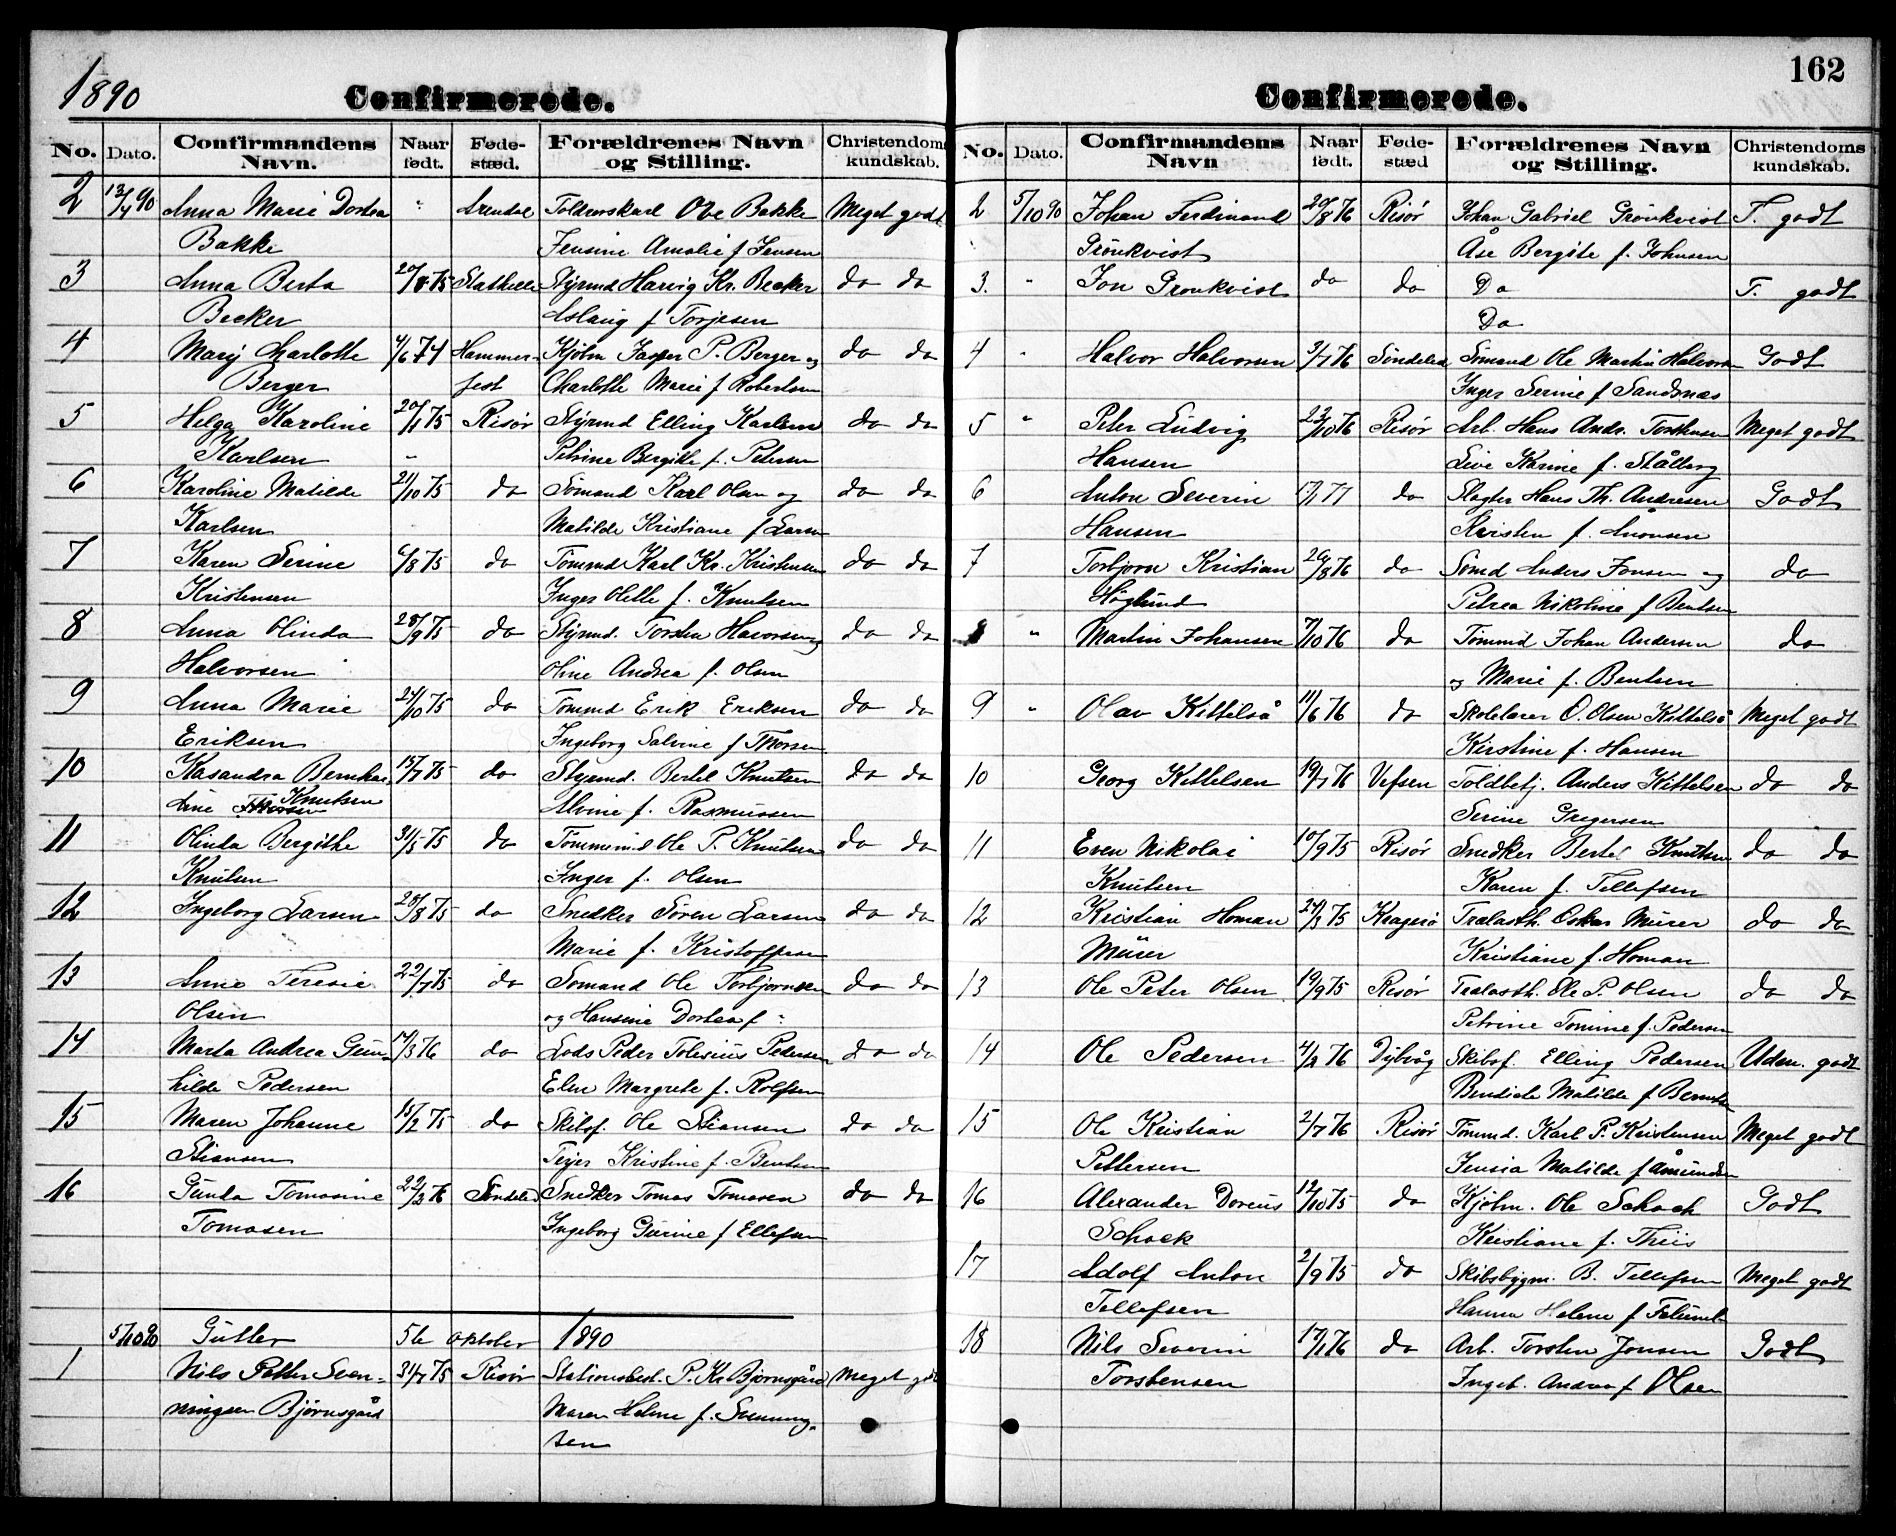 1890
Confirmerede.
No. Dato. Confirmandens Navn. Naar født. Føde-stæd. Forældrenes Navn og Stilling. Christendoms kundskab.
2 13/4 90 Anna Marie Dortea " Arendal Toldrorskarl Ove Bakke Meget godt
Bakke Jensine Amalie f Jensen
3 Anna Berta 20/8 75 Stathelle Styrmd Harvig Kr. Becker do do
Becker Aslaug f Torjesen
4 Mary Charlotte 4/6 74 Hammer- Kjøbm Jasper P. Berger og do do
Berger fest Charlotte Marie f Robertson
5 Helga Karoline 20/1 75 Risør Styrmd Elling Karlsen do do
Karlsen " Petrine Bergitte f. Petersen
6 Karoline Matilde 21/10 75 do Sømand Karl Olsen og do do
Karlsen Matilde Kristiane f Larsen
7 Karen Serine 6/8 75 do Tømmd Karl Kr. Kristensen do do
Kristensen Inger Olette f. Knutsen
8 Anna Olinda 28/9 75 do Styrmd. Torsten Havorsen og do do
Halvorsen Oline Andrea f. Olsen
9 Anna Marie 24/10 75 do Tømmd Erik Eriksen do do
Eriksen Ingeborg Salvine f Thorsen
10 Kasandra Bernhar- 15/7 75 do Styrmd. Bertel Knutsen do do
dine Knutsen Alvine f. Rasmussen
11 Olinda Bergithe 31/5 75 do Tømmermd Ole P. Knutsen do do
Knutsen Inger f. Olsen
12 Ingeborg Larsen 28/8 75 do Snedker Søren Larsen do do
Marie f. Kristoffersen
13 Anne Teresie 22/7 75 do Sømand Ole Torbjørnsen do do
Olsen og Hansine Dortea f "
14 Marta Andrea Gun- 14/3 76 do Lods Peder Tolesius Pedersen do do
hilde Pedersen Elen Margrete f. Rolfsen
15 Maren Johanne 15/2 75 do Skibsf. Ole Stiansen do do
Stiansen Kristine f. Bentsen
16 Gunda Tomasine 22/3 76 Søndeled Snedker Tomas Tomasen do do
Tomasen Ingeborg Gurine f Ellefsen
5/10 90 Gutter 5te oktober 1890
1 Nils Petter Sven- 31/7 75 Risør Stationsbest. P. Kr Bjørnsgård Meget godt
ningsen Bjørnsgård Maren Helene f. Svenning-
sen
162
Confirmerede.
No. Dato. Confirmandens Navn Naar født. Føde-stæd Forældrenes Navn og Stilling. Christendoms kundskab.
2 5/10 90 Johan Ferdinand 20/8 76 Risør Johan Gabriel Grönkvist T. godt
Grönkvist Åse Bergite f. Johnsen
3. " Jon Grönkvist do do Do T. godt
Do
4 " Halvor Halvorsen 3/7 76 Søndeled Sømand Ole Martin Halvorsen Godt
Inger Serine f Sandsnæs
5 " Peter Ludvig 23/10 76 Risør Arb. Hans Andr. Torstensen Meget godt
Hansen Live Karine f. Stålberg
6 Anton Severin 17/1 77 do Slagter Hans Th. Andresen Godt
Hansen Kirsten f. Aronsen
7 Torbjørn Kristian 26/8 76 do Sømd Anders Jonsen og do
Höglund Petrea Nikoline f Bentsen
8 " Martin Johansen 7/10 76 do Tømmd Johan Andersen do
og Marie f. Bentsen
9 " Olav Kittelså 11/6 76 do Skolelærer O. Olsen Kittelså Meget godt
Kirstine f. Hansen
10 Georg Kittelsen 19/7 76 Vefsen Toldbetj. Anders Kittelsen do do
Serine Gregersen
11 Even Nikolai 10/9 75 Risør Snedker Bertel Knutsen do do
Knutsen Karen f. Tellefsen
12 Kristian Homan 24/3 75 Kragerø Trælasth. Oskar Mürer do do
Mürer Kristiane f. Homan
13 Ole Peter Olsen 19/9 75 Risør Trælasth. Ole P. Olsen do do
Petrine Tomine f. Pedersen
14 Ole Pedersen 4/2 76 Dybvåg Skibsf. Elling Pedersen Uden. godt
Bendicte Matilde f
15 Ole Kristian 2/7 76 Risør Tømmd. Karl P. Kristensen Meget godt
Pettersen Jensia Matilde f Åmundsen
16 Alexander Doreus 12/10 75 do Kjøbm. Ole Schack Godt
Schack Kristiane f. Thiis
17 Adolf Anton 2/9 75 do Skibsbygm. B. Tellefsen Meget godt
Tellefsen Hanna Helene f
18 Nils Severin 17/1 76 do Arb. Torsten Jonsen Godt
Torstensen Ingeb. Andrea f Olsen